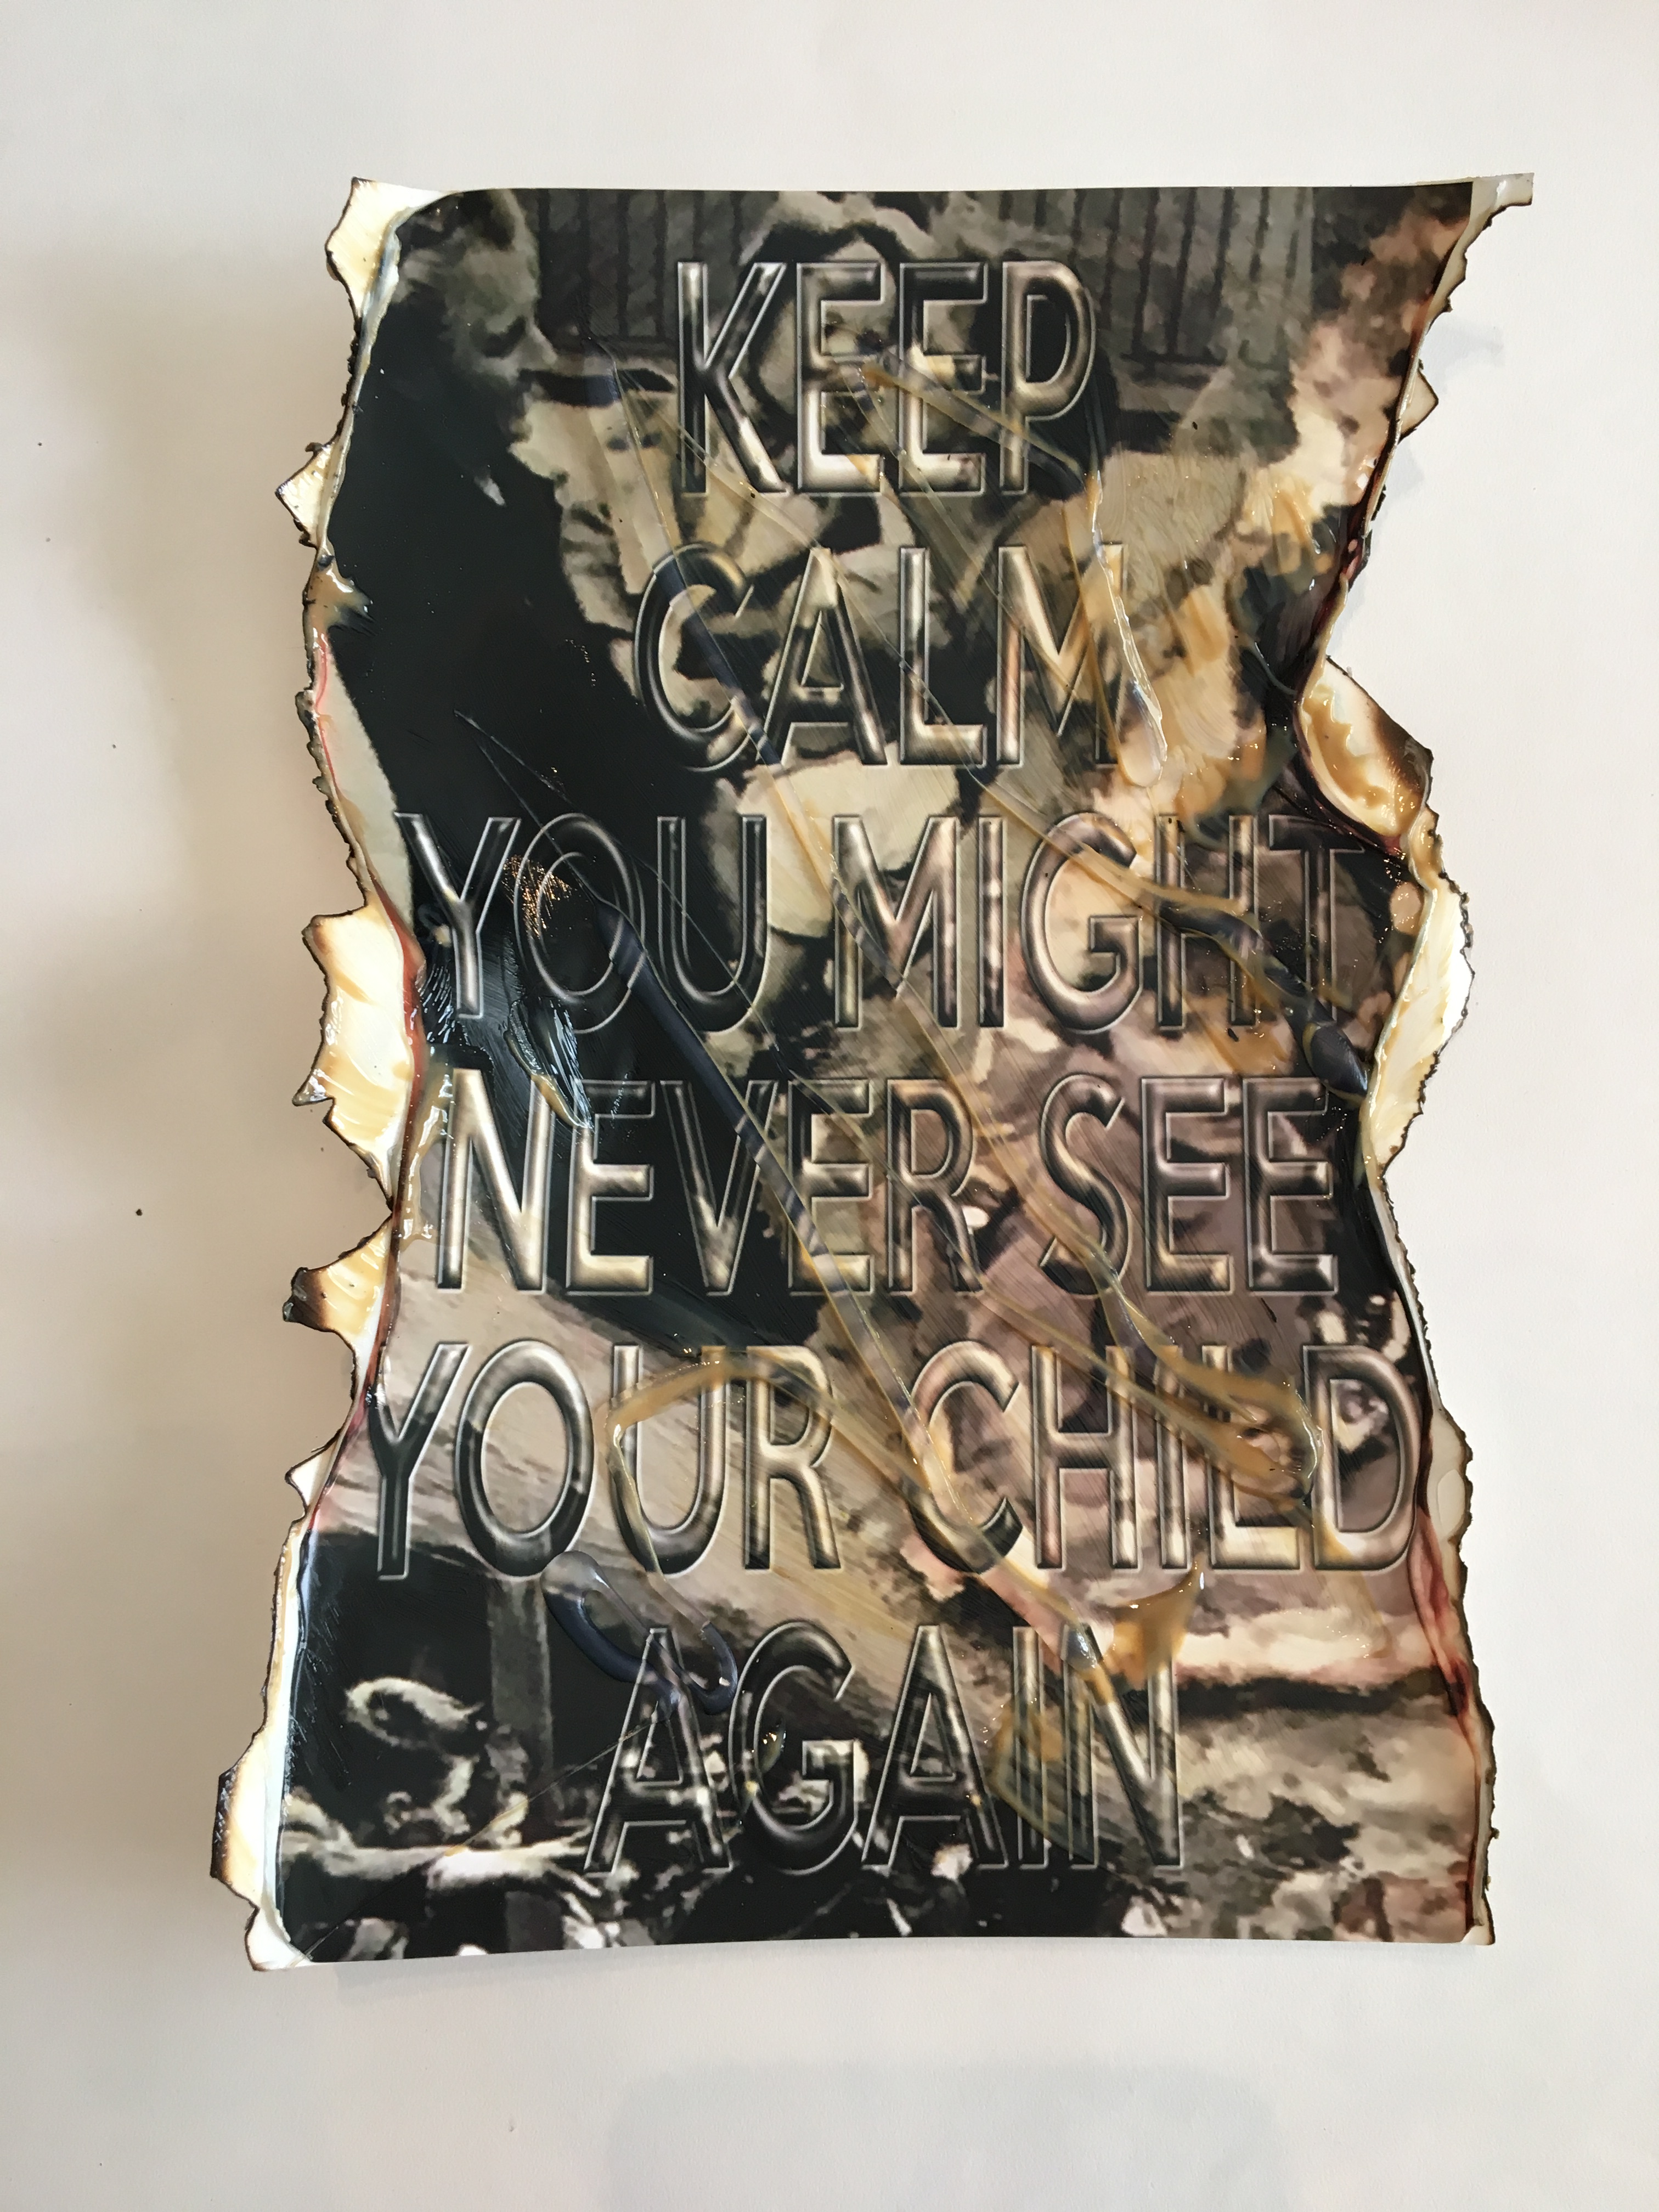 KEEP
CALM
YOU MIGHT
NEVER SEE
YOUR CHILD
AGAIN